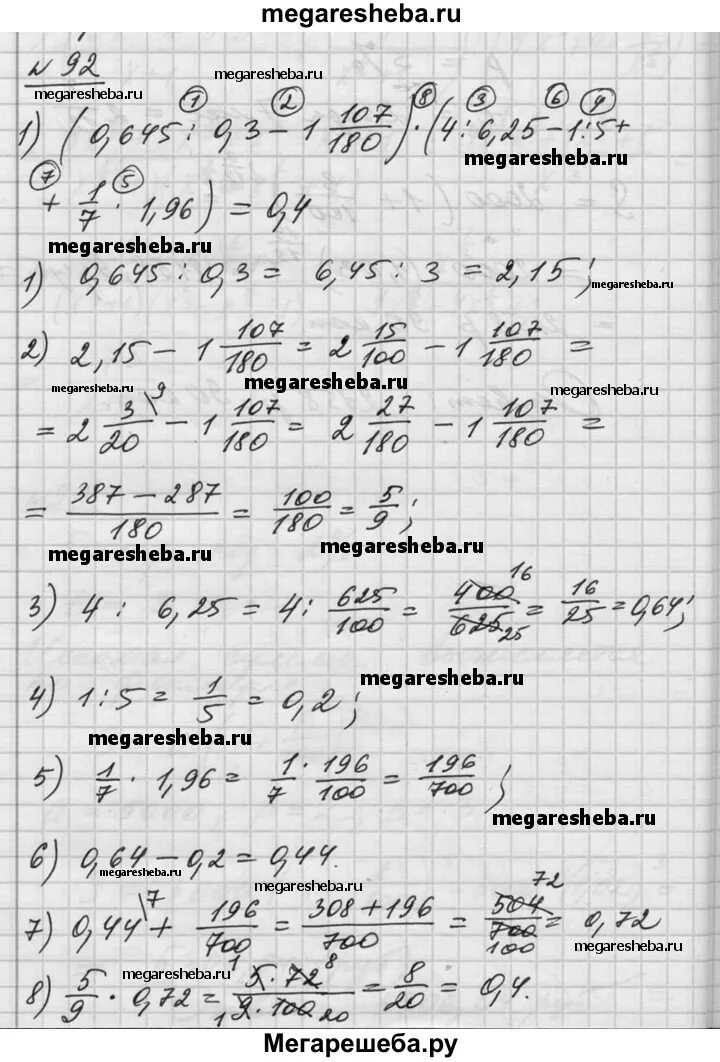 megaresheba.ru
№ 92
megaresheba.ru
megaresheba.ru
① ② ⑧ ③ ⑥ ④
1) (0,645 : 0,3 − 1 107/180) · (4 : 6,25 − 1 : 5 +
megaresheba.ru
⑦ ⑤
+ 1/7 · 1,96) = 0,4
megaresheba.ru
1) 0,645 : 0,3 = 6,45 : 3 = 2,15;
megaresheba.ru
2) 2,15 − 1 107/180 = 2 15/100 − 1 107/180 =
megaresheba.ru
megaresheba.ru
= 2 3/20 \9 − 1 107/180 = 2 27/180 − 1 107/180 =
= (387 − 287)/180 = 100/180 = 5/9;
megaresheba.ru
megaresheba.ru
3) 4 : 6,25 = 4 : 625/100 = 400/625 16 25 = 16/25 = 0,64;
megaresheba.ru
4) 1 : 5 = 1/5 = 0,2;
megaresheba.ru
5) 1/7 · 1,96 = 1/7 · 196/100 = 196/700;
megaresheba.ru
6) 0,64 − 0,2 = 0,44.
megaresheba.ru
megaresheba.ru
7) 0,44 \7 + 196/700 = (308 + 196)/700 = 504/700 72 100 = 0,72
megaresheba.ru
megaresheba.ru
8) 5/9 · 0,72 = (5 · 72)/(9 · 100) 1 8 1 20 = 8/20 = 0,4.
Мегарешеба.ру